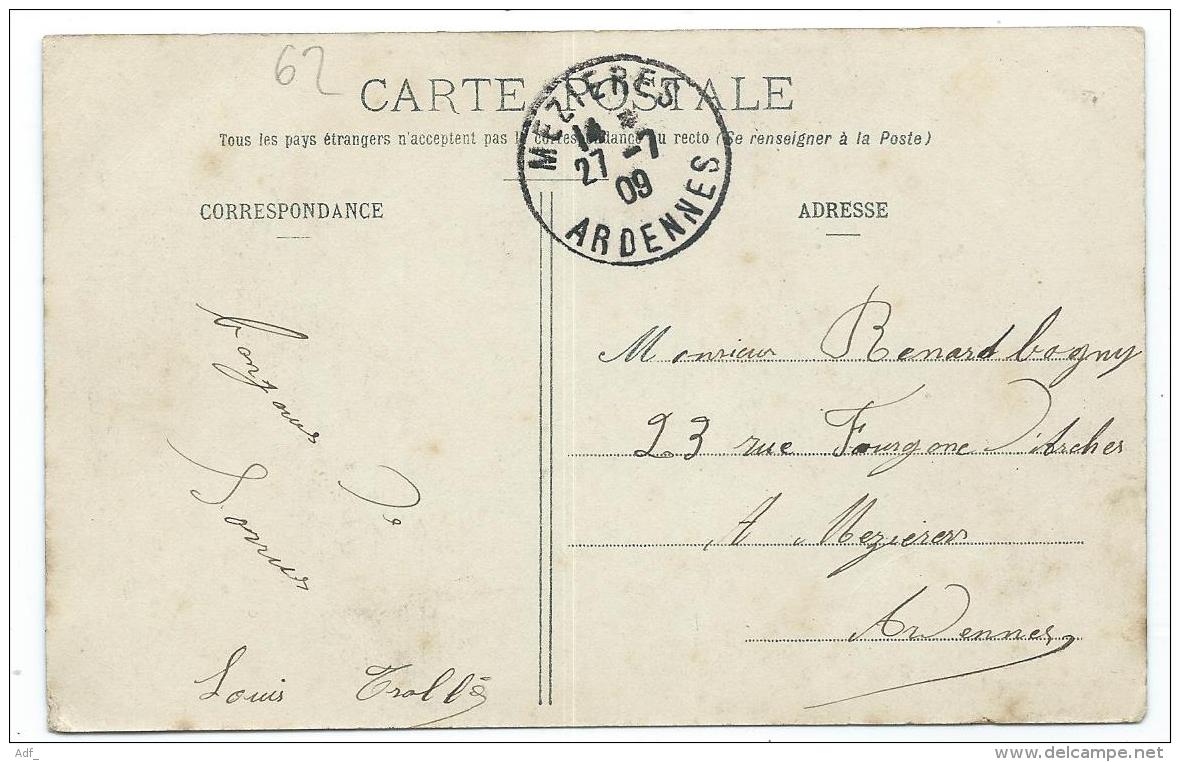 62
CARTE POSTALE
Tous les pays étrangers n'acceptent pas la correspondance au recto (Se renseigner à la Poste)
MEZIERES
14
27 -7
09
ARDENNES
CORRESPONDANCE
bonjour
de
Sorrus
Louis Trollé
ADRESSE
Monsieur Renard bogny
23 rue Fourgone d'Arches
A Mezieres
Ardennes
Adf_
www.delcampe.net